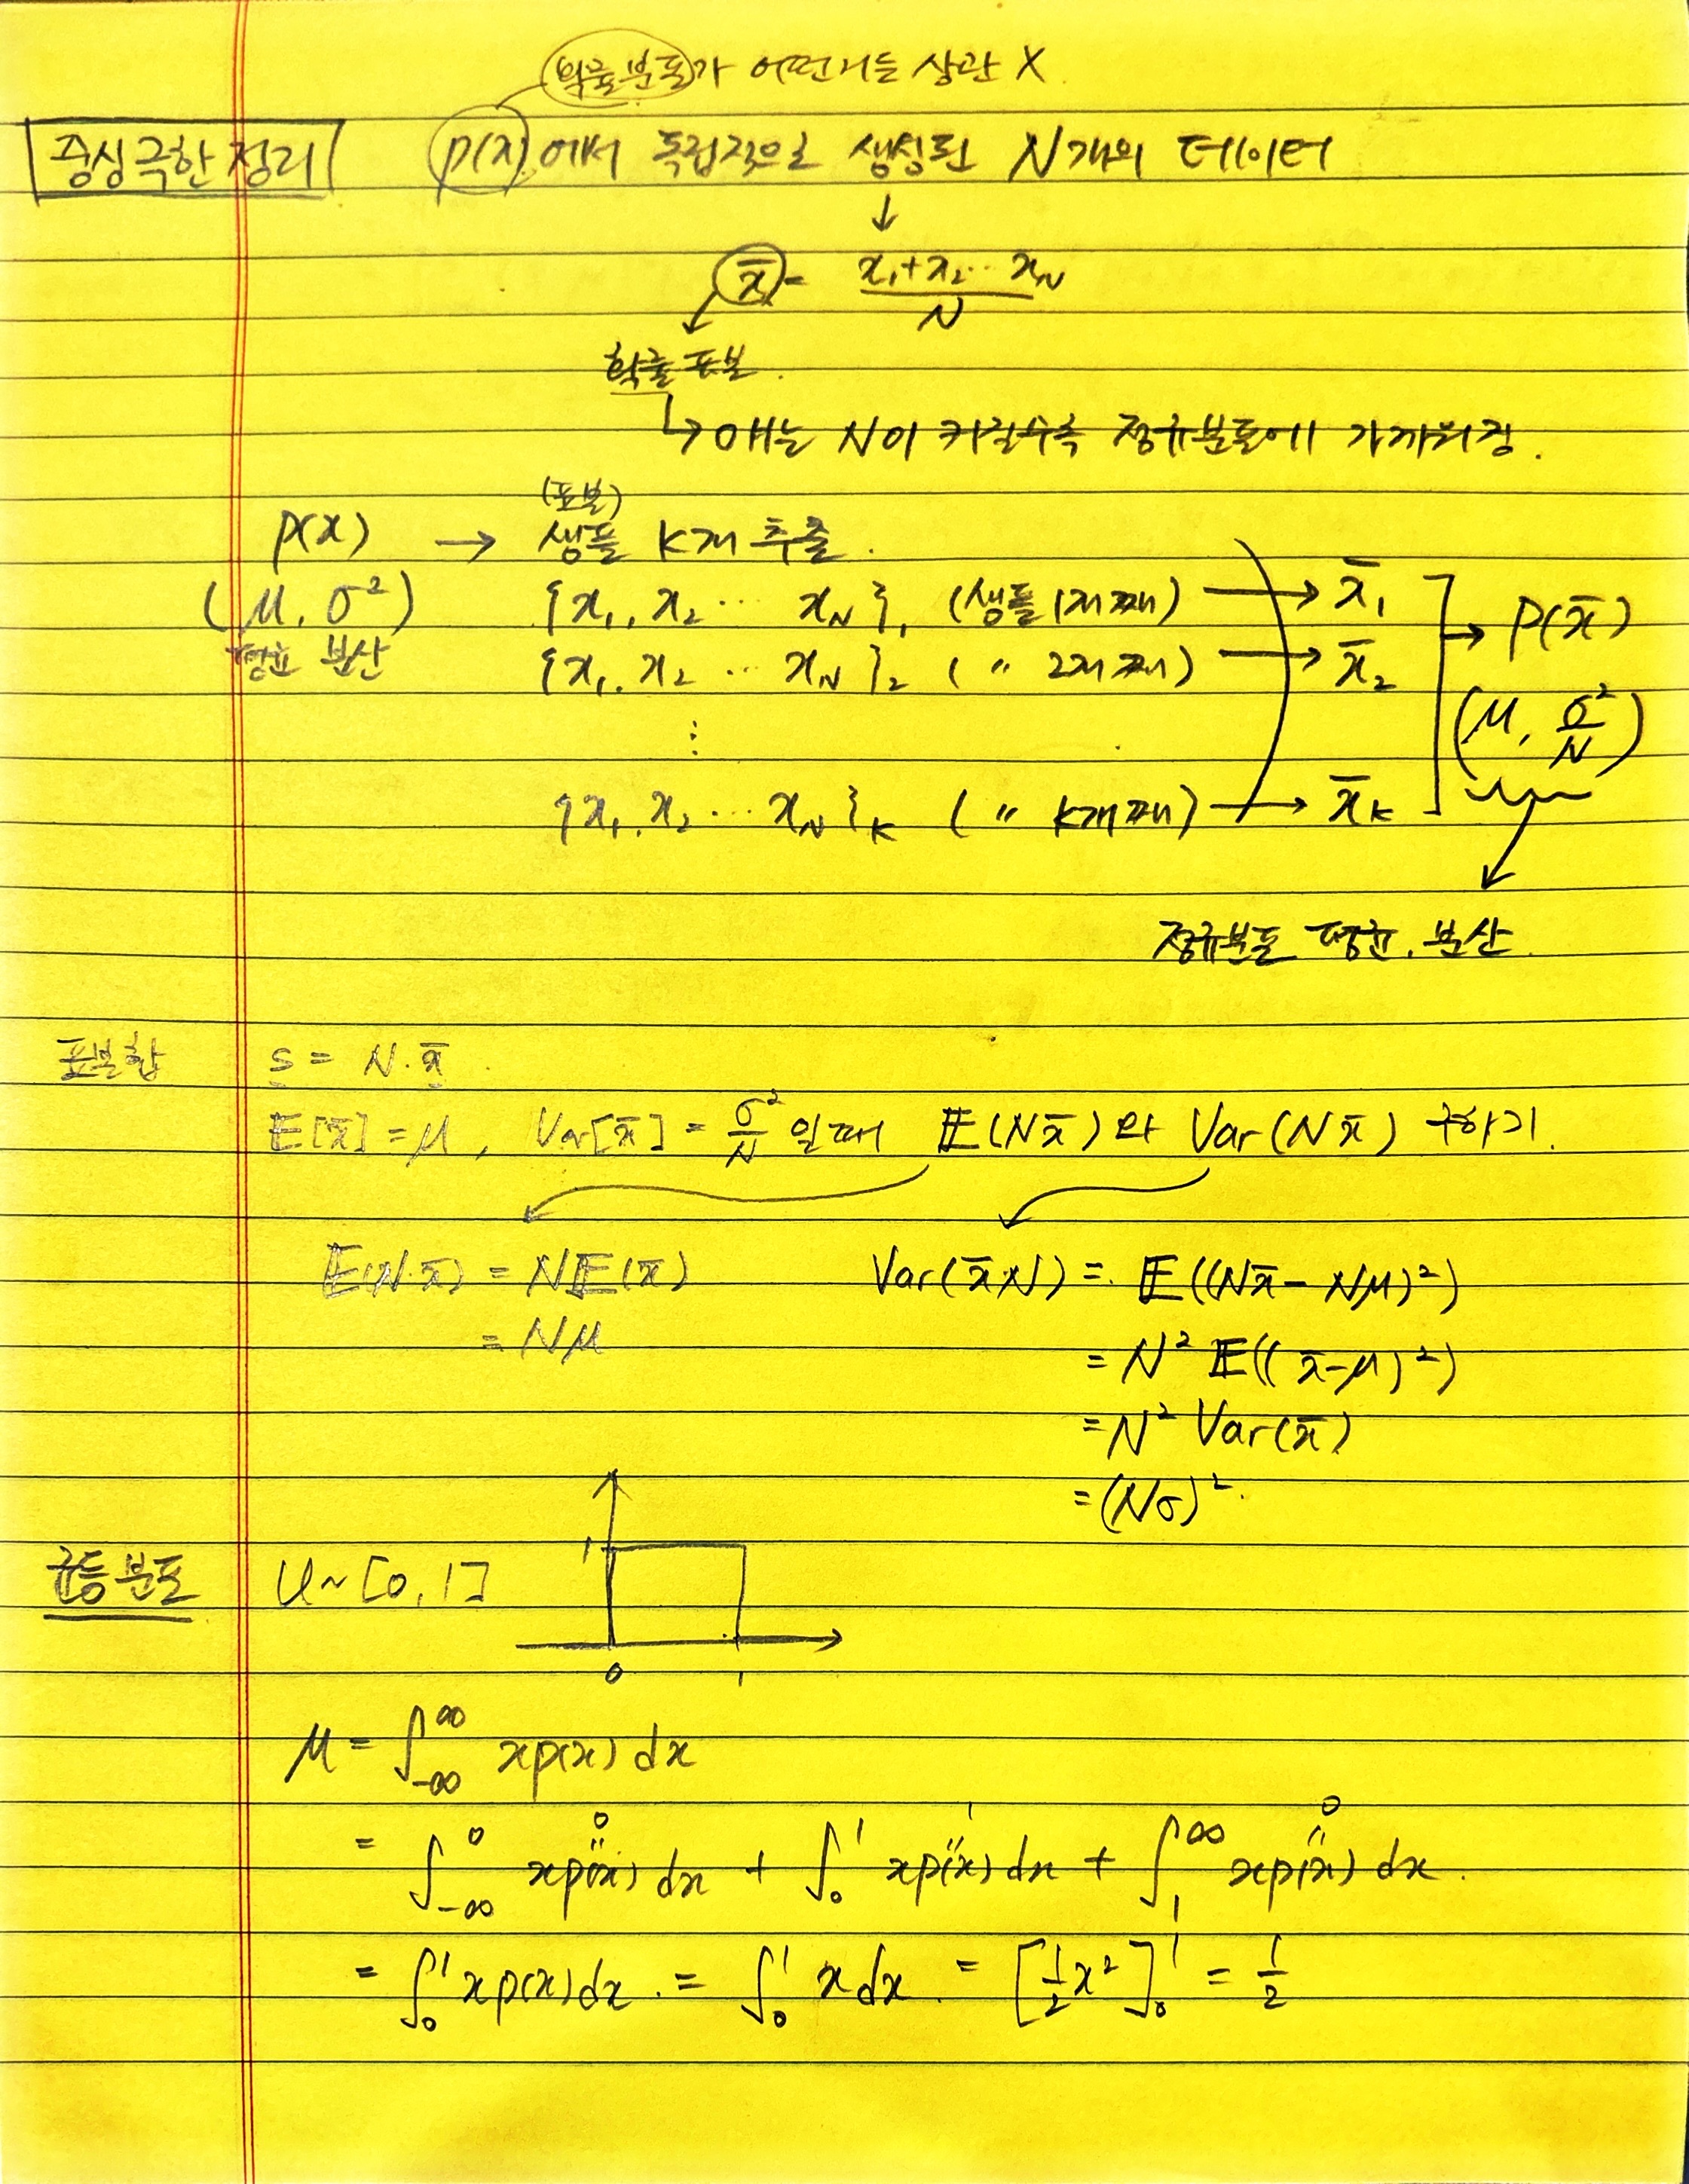 확률분포가 어떤거든 상관 X
중심극한정리 p(x)에서 독립적으로 생성된 N개의 데이터
↓
x̄ = (x₁+x₂⋯xₙ)/N
확률 표본.
↳ 얘는 N이 커질수록 정규분포에 가까워짐.
(표본)
p(x) → 샘플 K개 추출.
(μ, σ²) {x₁, x₂ ⋯ x_N}₁ (샘플 1개째) → x̄₁
평균 분산 {x₁, x₂ ⋯ x_N}₂ (〃 2개째) → x̄₂ → P(x̄)
⋮ (μ, σ²/N)
{x₁, x₂ ⋯ x_N}_K (〃 K개째) → x̄_K
정규분포 평균, 분산.
표본합 s = N·x̄
E[x̄] = μ, Var[x̄] = σ²/N 일때 E(Nx̄)와 Var(Nx̄) 구하기.
E(N·x̄) = NE(x̄) Var(x̄N) = E((Nx̄ - Nμ)²)
= Nμ = N² E((x̄-μ)²)
= N² Var(x̄)
= (Nσ)².
균등분포 U~[0, 1] 1 0 1
μ = ∫_{-∞}^{∞} xp(x) dx
0 1 0
= ∫_{-∞}^{0} xp(x) dx + ∫_{0}^{1} xp(x) dx + ∫_{1}^{∞} xp(x) dx.
= ∫_{0}^{1} xp(x)dx. = ∫_{0}^{1} x dx. = [½x²]_{0}^{1} = ½